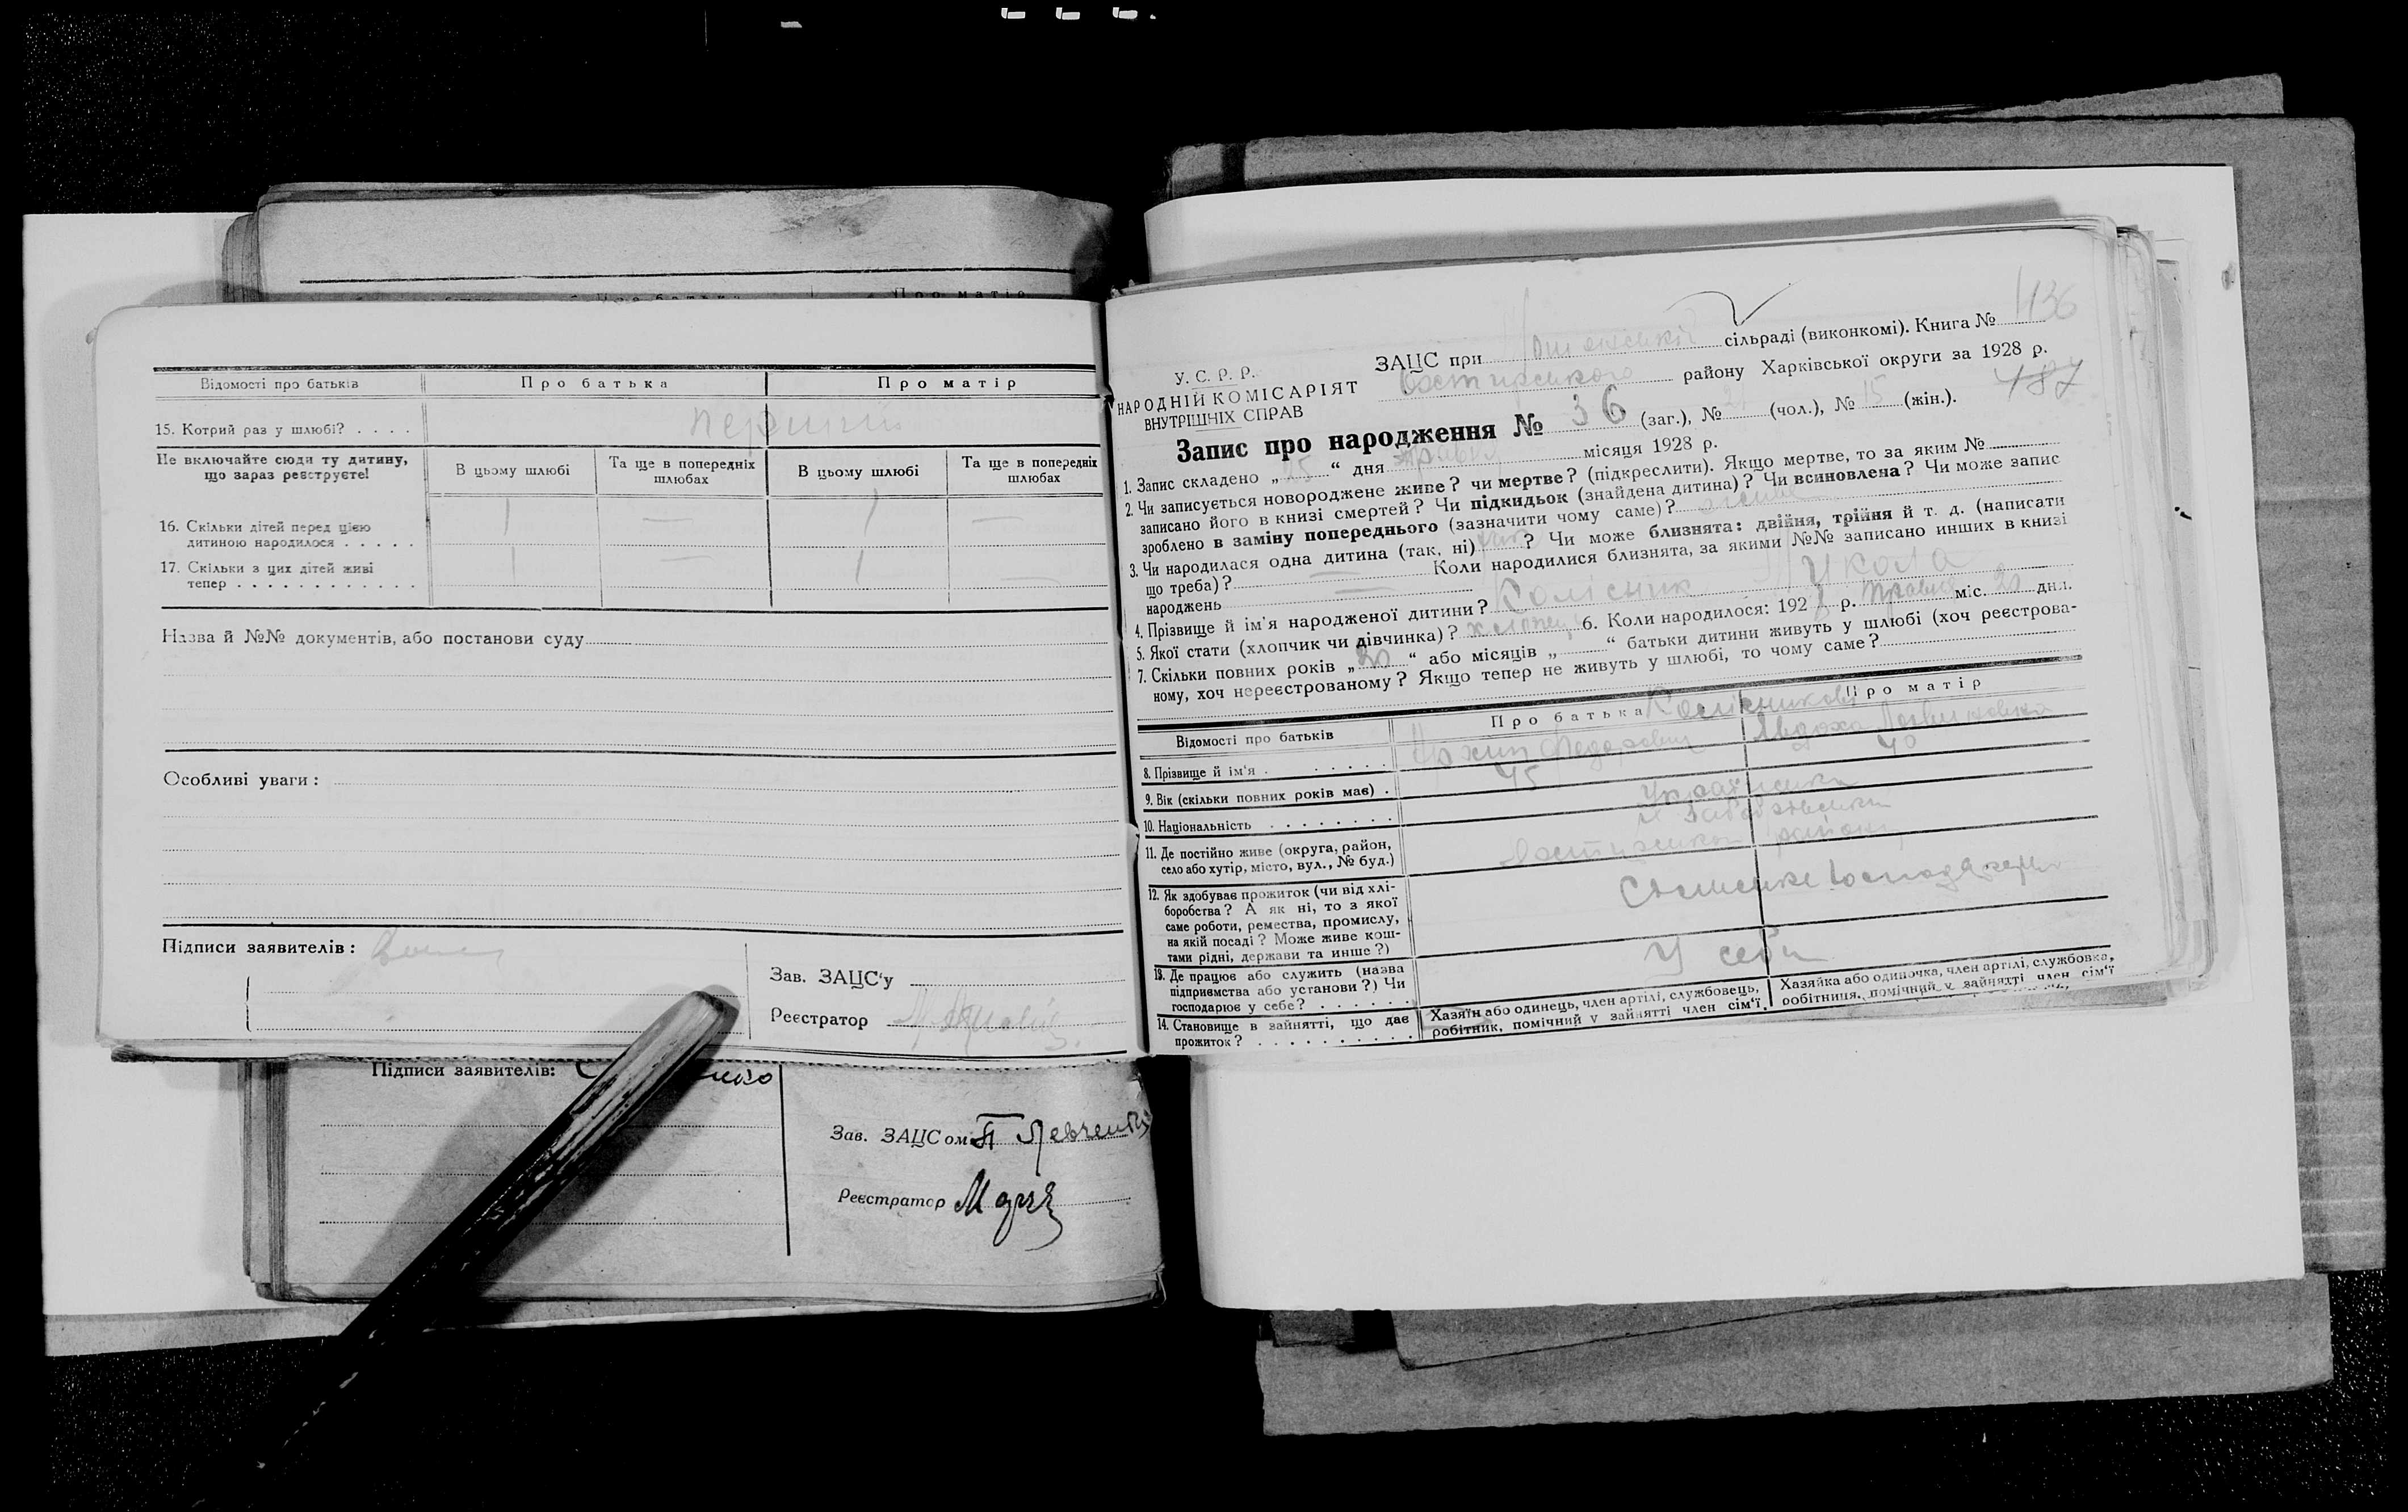 Відомості про батьків Про батька Про матір
15. Котрий раз у шлюбі? . . . . перший
Не включайте сюди ту дитину, що зараз реєструєте!
В цьому шлюбі Та ще в попередніх шлюбах В цьому шлюбі Та ще в попередніх шлюбах
16. Скільки дітей перед цією
дитиною народилося . . . . . 1 — 1 —
17. Скільки з цих дітей живі
тепер . . . . . . . . . . . . 1 — 1 —
Назва й №№ документів, або постанови суду
Особливі уваги:
Підписи заявителів:
Зав. ЗАЦС'у
Реєстратор
Підписи заявителів:
Зав. ЗАЦСом П Левченко
Реєстратор
У. С. Р. Р.
НАРОДНІЙ КОМІСАРІЯТ
ВНУТРІШНІХ СПРАВ
ЗАЦС при сільраді (виконкомі). Книга № 436
району Харківської округи за 1928 р.
487
Запис про народження № 36 (заг.), № 21 (чол.), № 15 (жін.).
1. Запис складено „ 25 “ дня травня місяця 1928 р.
2. Чи записується новороджене живе? чи мертве? (підкреслити). Якщо мертве, то за яким №
записано його в книзі смертей? Чи підкидьок (знайдена дитина)? Чи всиновлена? Чи може запис
зроблено в заміну попереднього (зазначити чому саме)? живе
3. Чи народилася одна дитина (так, ні) ? Чи може близнята: двійня, трійня й т. д. (написати
що треба)? — Коли народилися близнята, за якими №№ записано инших в книзі
народжень —
4. Прізвище й ім'я народженої дитини? Колісник Микола
5. Якої стати (хлопчик чи дівчинка)? хлопець 6. Коли народилося: 192 8 р. травня міс. 20 дня.
7. Скільки повних років „ 20 “ або місяців „ “ батьки дитини живуть у шлюбі (хоч реєстрова-
ному, хоч нереєстрованому? Якщо тепер не живуть у шлюбі, то чому саме?
Відомості про батьків Про батька Про матір
Колісникови
8. Прізвище й ім'я . . . . . . Архип Федорович Авдоха
9. Вік (скільки повних років має) . 45 40
10. Національність . . . . . . . . Українська
11. Де постійно живе (округа, район,
село або хутір, місто, вул., № буд.)
району
12. Як здобуває прожиток (чи від хлі-
боробства? А як ні, то з якої
саме роботи, ремества, промислу,
на якій посаді? Може живе кош-
тами рідні, держави та инше?)
13. Де працює або служить (назва
підприємства або установи?) Чи
господарює у себе? . . . . . . У себе
14. Становище в зайнятті, що дає
прожиток? . . . . . . . . . .
Хазяїн або одинець, член артілі, службовець,
робітник, помічний у зайнятті член сім'ї.
Хазяйка або одиночка, член артілі, службовка,
робітниця, помічний у зайнятті член сім'ї